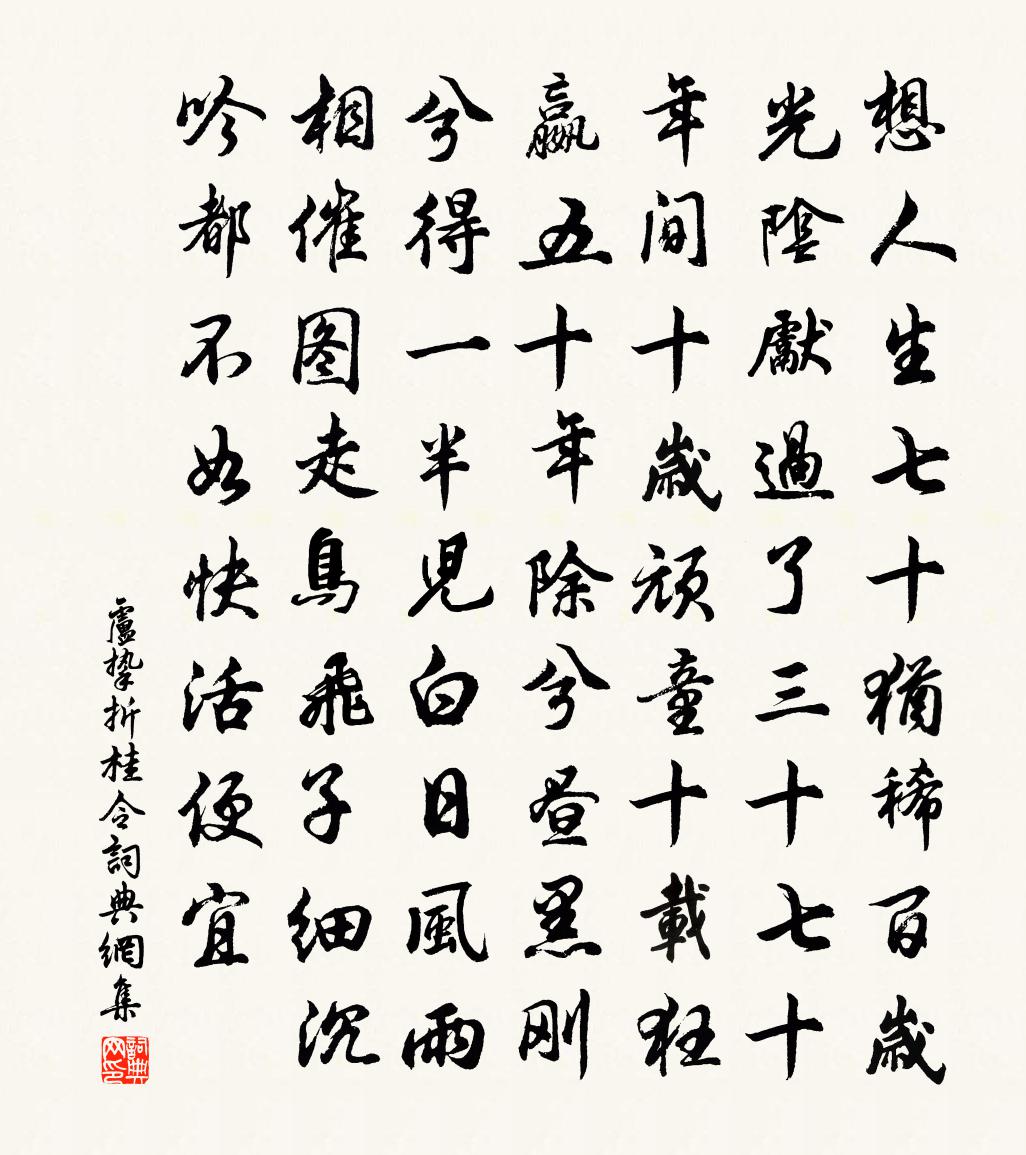 想人生七十猶稀百歲
光陰獻過了三十七十
年間十歲頑童十載狂
嬴五十年除兮昼黑剛
兮得一半児白日風雨
相催图走鳥飛子細沉
吟都不如快活便宜
盧摯折桂令詞典網集
詞典
网印